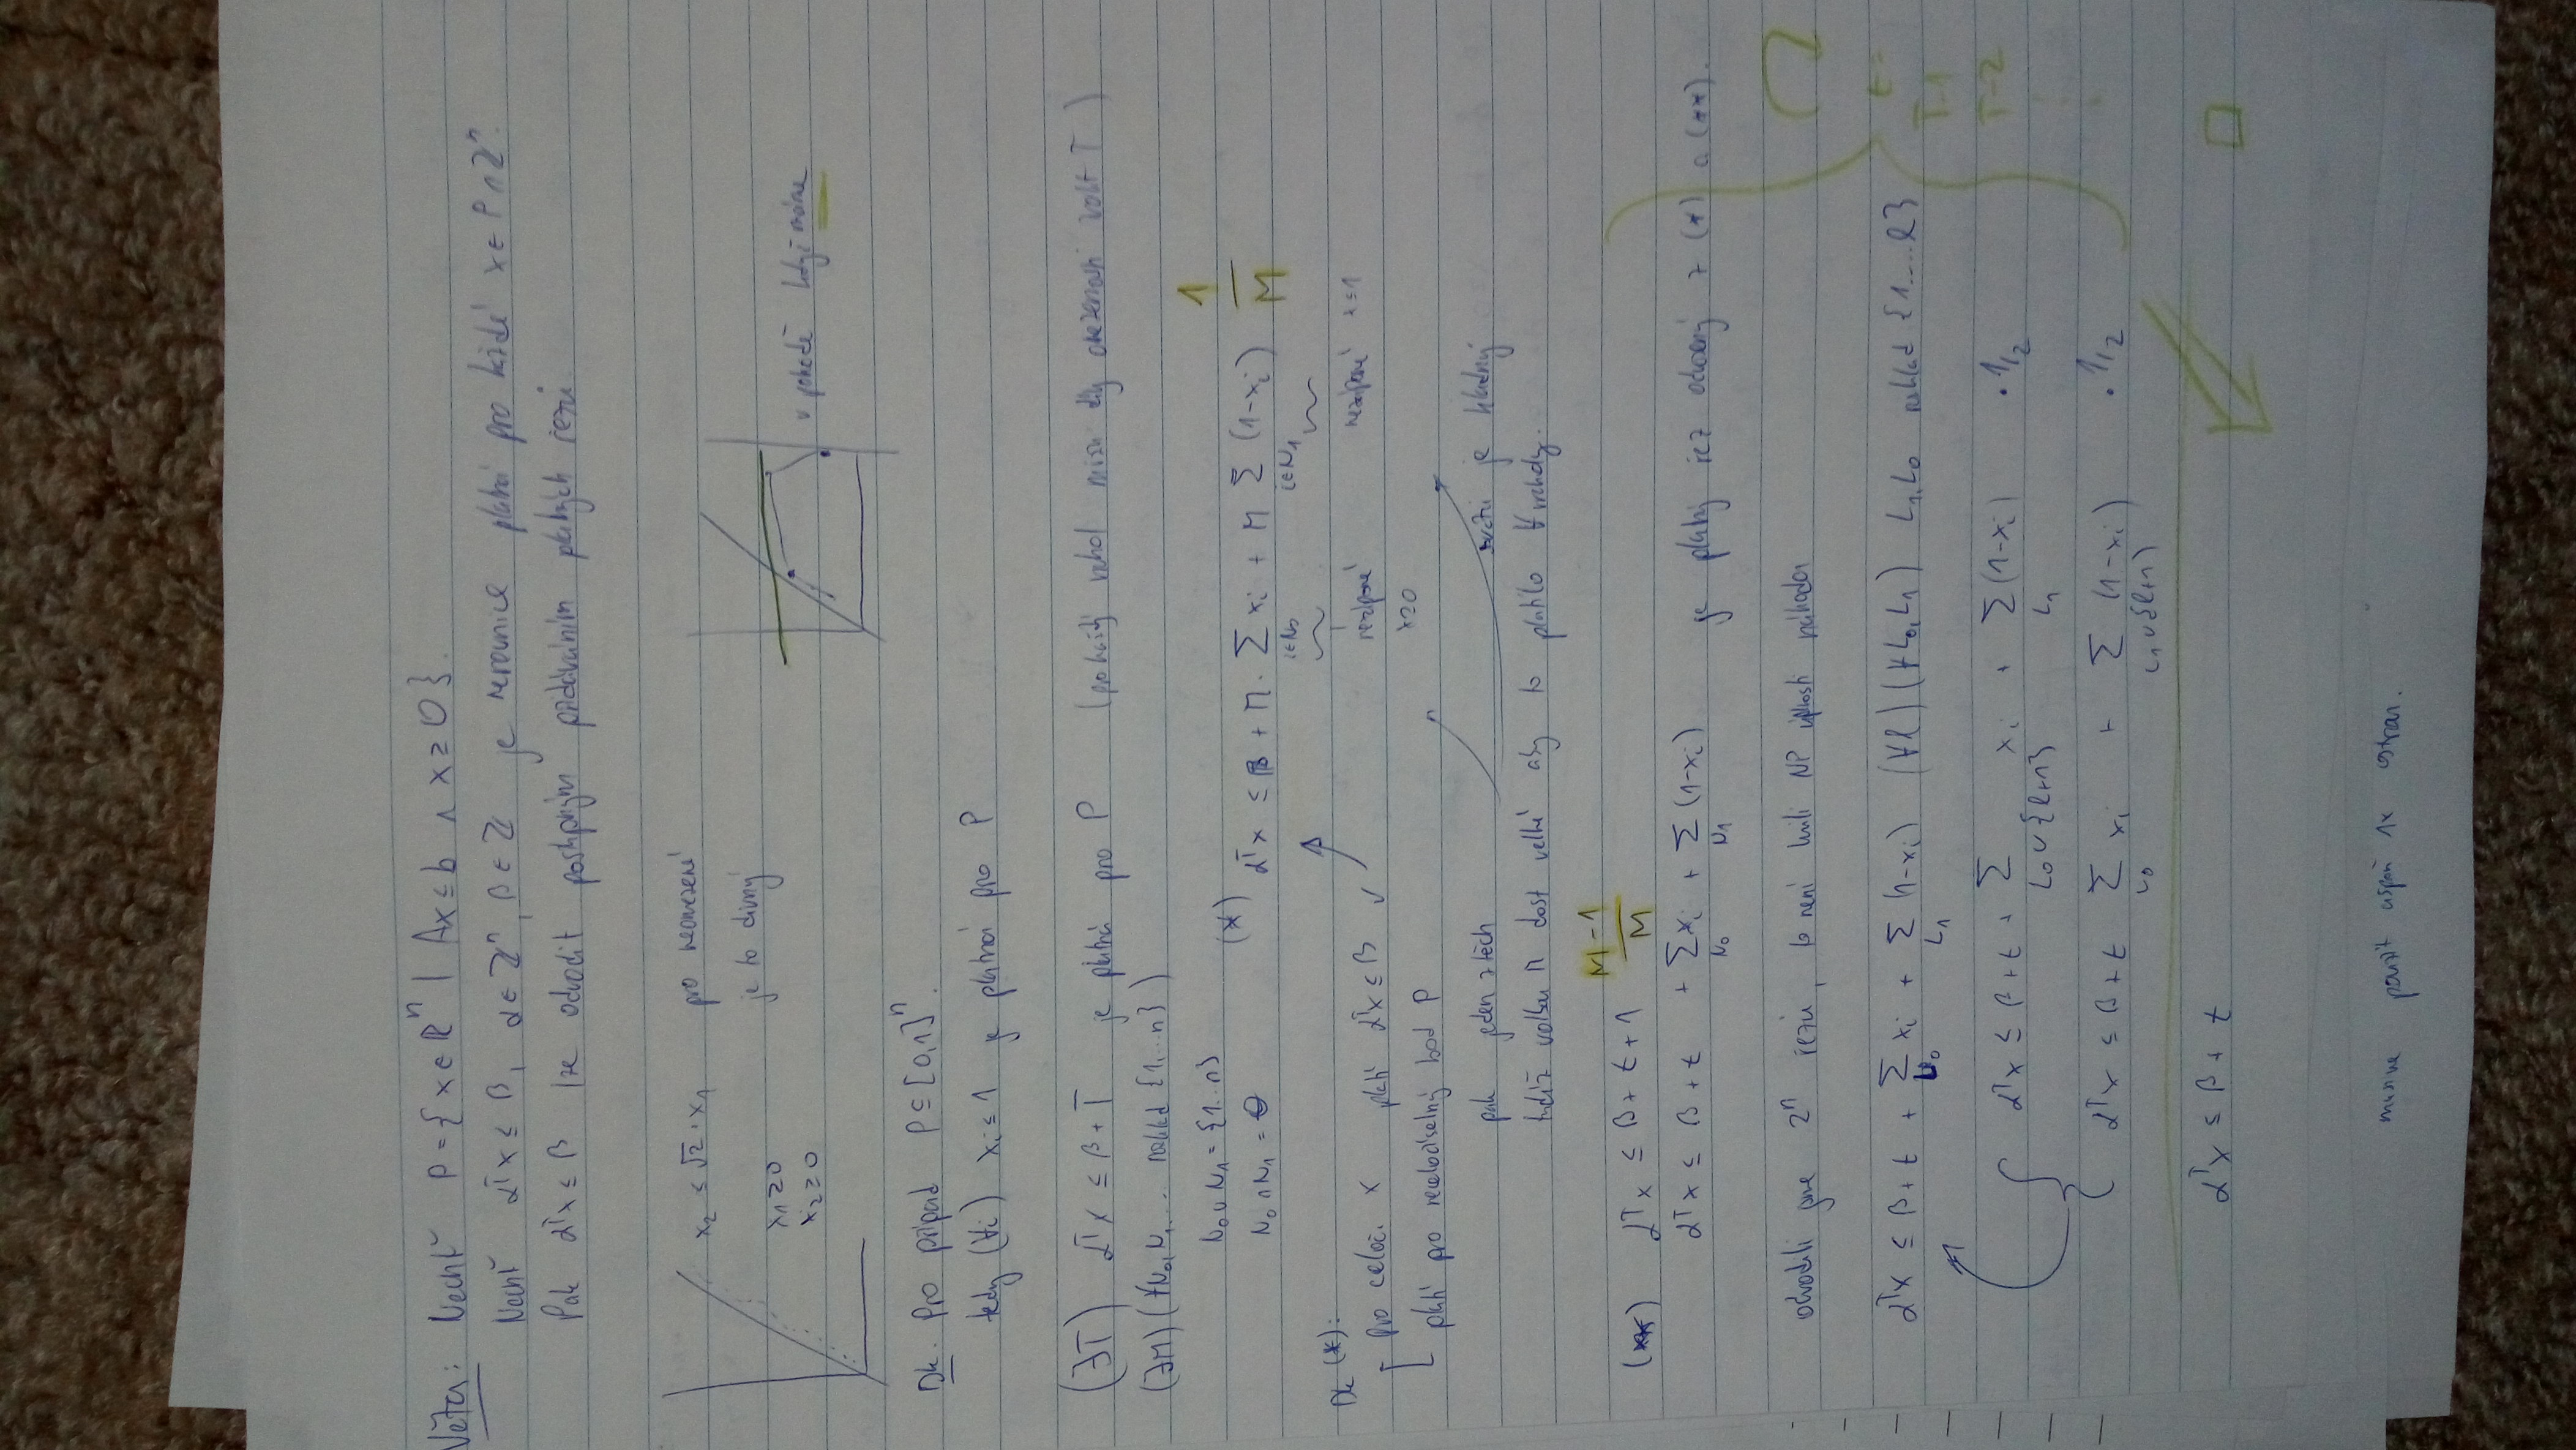 Věta: Nechť P = {x ∈ ℝⁿ | Ax ≤ b ∧ x ≥ 0}.
Nechť αᵀx ≤ β, α ∈ ℤⁿ, β ∈ ℤ je nerovnice platná pro každé x ∈ P ∩ ℤⁿ.
Pak αᵀx ≤ β lze odvodit postupným přidáváním platných řezů.
x₂ ≤ √2 · x₁ pro neomezené
je to divný
x₁ ≥ 0
x₂ ≥ 0
v pohodě když máme
Dk. Pro případ P ⊆ [0,1]ⁿ.
tedy (∀i) xᵢ ≤ 1 je platná pro P
(∃T) αᵀx ≤ β + T je platná pro P (pro každý vrchol díky omezenosti volit T)
(∃M) (∀N₀, N₁ ... rozklad {1,...n})
N₀ ∪ N₁ = {1...n}
N₀ ∩ N₁ = ∅
(*) αᵀx ≤ β + M · Σ_{i∈N₀} xᵢ + M Σ_{i∈N₁} (1-xᵢ) 1/M
Dk (*):
nezáporné
x ≥ 0
nezáporné x ≤ 1
Pro celoč. x platí αᵀx ≤ β ✓
platí pro neceločíselný bod P
pak jeden z těch je kladný
tudíž volbou M dost velké aby to platilo ∀ vrcholy.
(**) αᵀx ≤ β + t + 1 M-1/M
αᵀx ≤ β + t + Σ_{N₀} xᵢ + Σ_{N₁} (1-xᵢ) je platný řez odvozený z (*) a (**).
odvodili jsme 2ⁿ řezů, to není kvůli NP úplnosti náhoda
αᵀx ≤ β + t + Σ_{L₀} xᵢ + Σ_{L₁} (1-xᵢ) (∀l) (∀L₀, L₁) L₁, L₀ rozklad {1....l}
t =
T-1
T-2
⋮
αᵀx ≤ β + t + Σ_{L₀∪{l+1}} xᵢ + Σ_{L₁} (1-xᵢ) · 1/2
αᵀx ≤ β + t Σ_{L₀} xᵢ + Σ_{L₁∪{l+1}} (1-xᵢ) · 1/2
αᵀx ≤ β + t □
musíme použít aspoň 1x